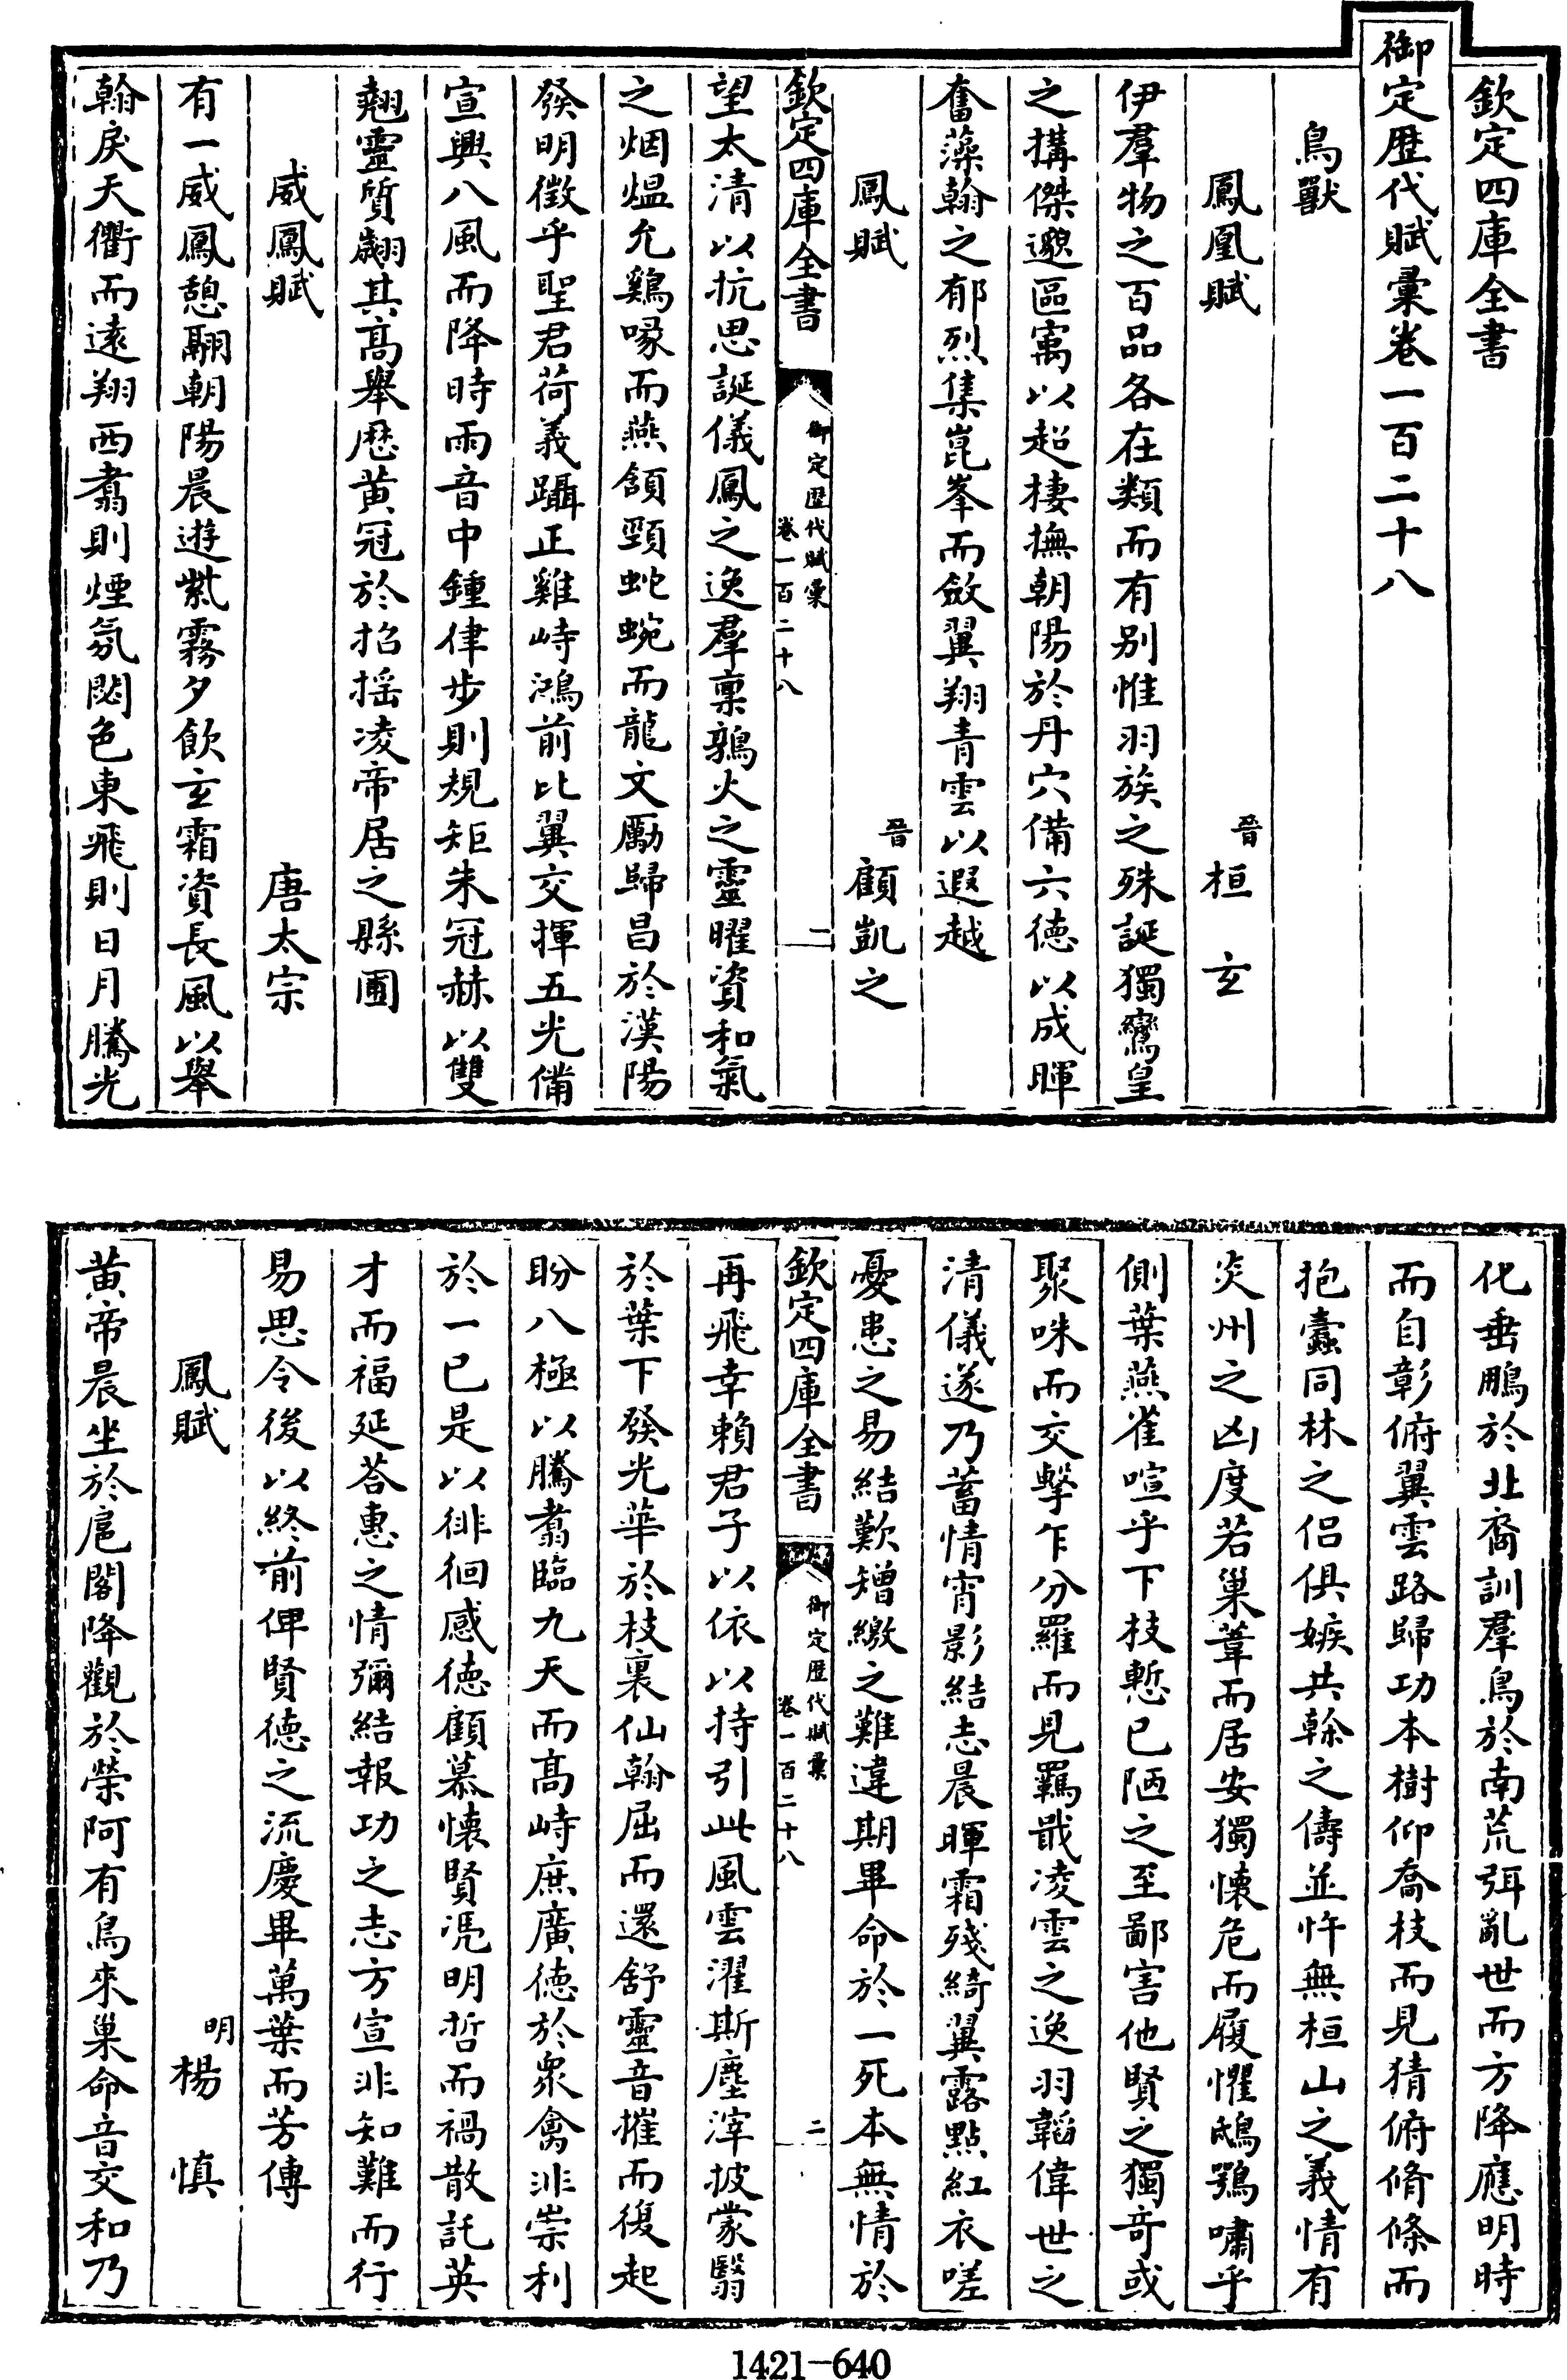 欽定四庫全書
御定歷代賦彙卷一百二十八
鳥獸
鳳凰賦　晉桓　玄
伊羣物之百品各在類而有别惟羽族之殊誕獨鸞皇
之搆傑邈區寓以超棲撫朝陽於丹穴備六德以成暉
奮藻翰之郁烈集崑峯而斂翼翔青雲以遐越
鳳賦　晉顧凱之
欽定四庫全書　御定歷代賦彙卷一百二十八　一
望太清以抗思誕儀鳳之逸羣稟鶉火之靈曜資和氣
之烟熅允鷄喙而燕頷頸蛇蜿而龍文勵歸昌於漢陽
發明徵乎聖君荷義躡正雞峙鴻前比翼交揮五光備
宣興八風而降時雨音中鍾律步則規矩朱冠赫以雙
翹靈質翽其高舉歷黄冠於招摇凌帝居之縣圃
威鳳賦　唐太宗
有一威鳳憩翮朝陽晨遊紫霧夕飲玄霜資長風以舉
翰戾天衢而遠翔西翥則煙氛閟色東飛則日月騰光
化垂鵬於北裔訓羣鳥於南荒弭亂世而方降應明時
而自彰俯翼雲路歸功本樹仰喬枝而見猜俯脩條而
抱蠹同林之侣俱嫉共榦之儔並忤無桓山之義情有
炎州之凶度若巢葦而居安獨懷危而履懼鴟鴞嘯乎
側葉燕雀喧乎下枝慙已陋之至鄙害他賢之獨奇或
聚咮而交擊乍分羅而見羈戢凌雲之逸羽韜偉世之
清儀遂乃蓄情宵影結志晨暉霜殘綺翼露點紅衣嗟
憂患之易結歎矰繳之難違期畢命於一死本無情於
欽定四庫全書　御定歷代賦彙卷一百二十八　二
再飛幸賴君子以依以持引此風雲濯斯塵滓披蒙翳
於葉下發光華於枝裏仙翰屈而還舒靈音摧而復起
盼八極以騰翥臨九天而高峙庶廣德於衆禽非崇利
於一已是以徘徊感德顧慕懷賢凴明哲而禍散託英
才而福延荅惠之情彌結報功之志方宣非知難而行
易思令後以終前俾賢德之流慶畢萬葉而芳傳
鳳賦　明楊　慎
黄帝晨坐於扈閣降觀於榮阿有鳥來巢命音交和乃
1421-640